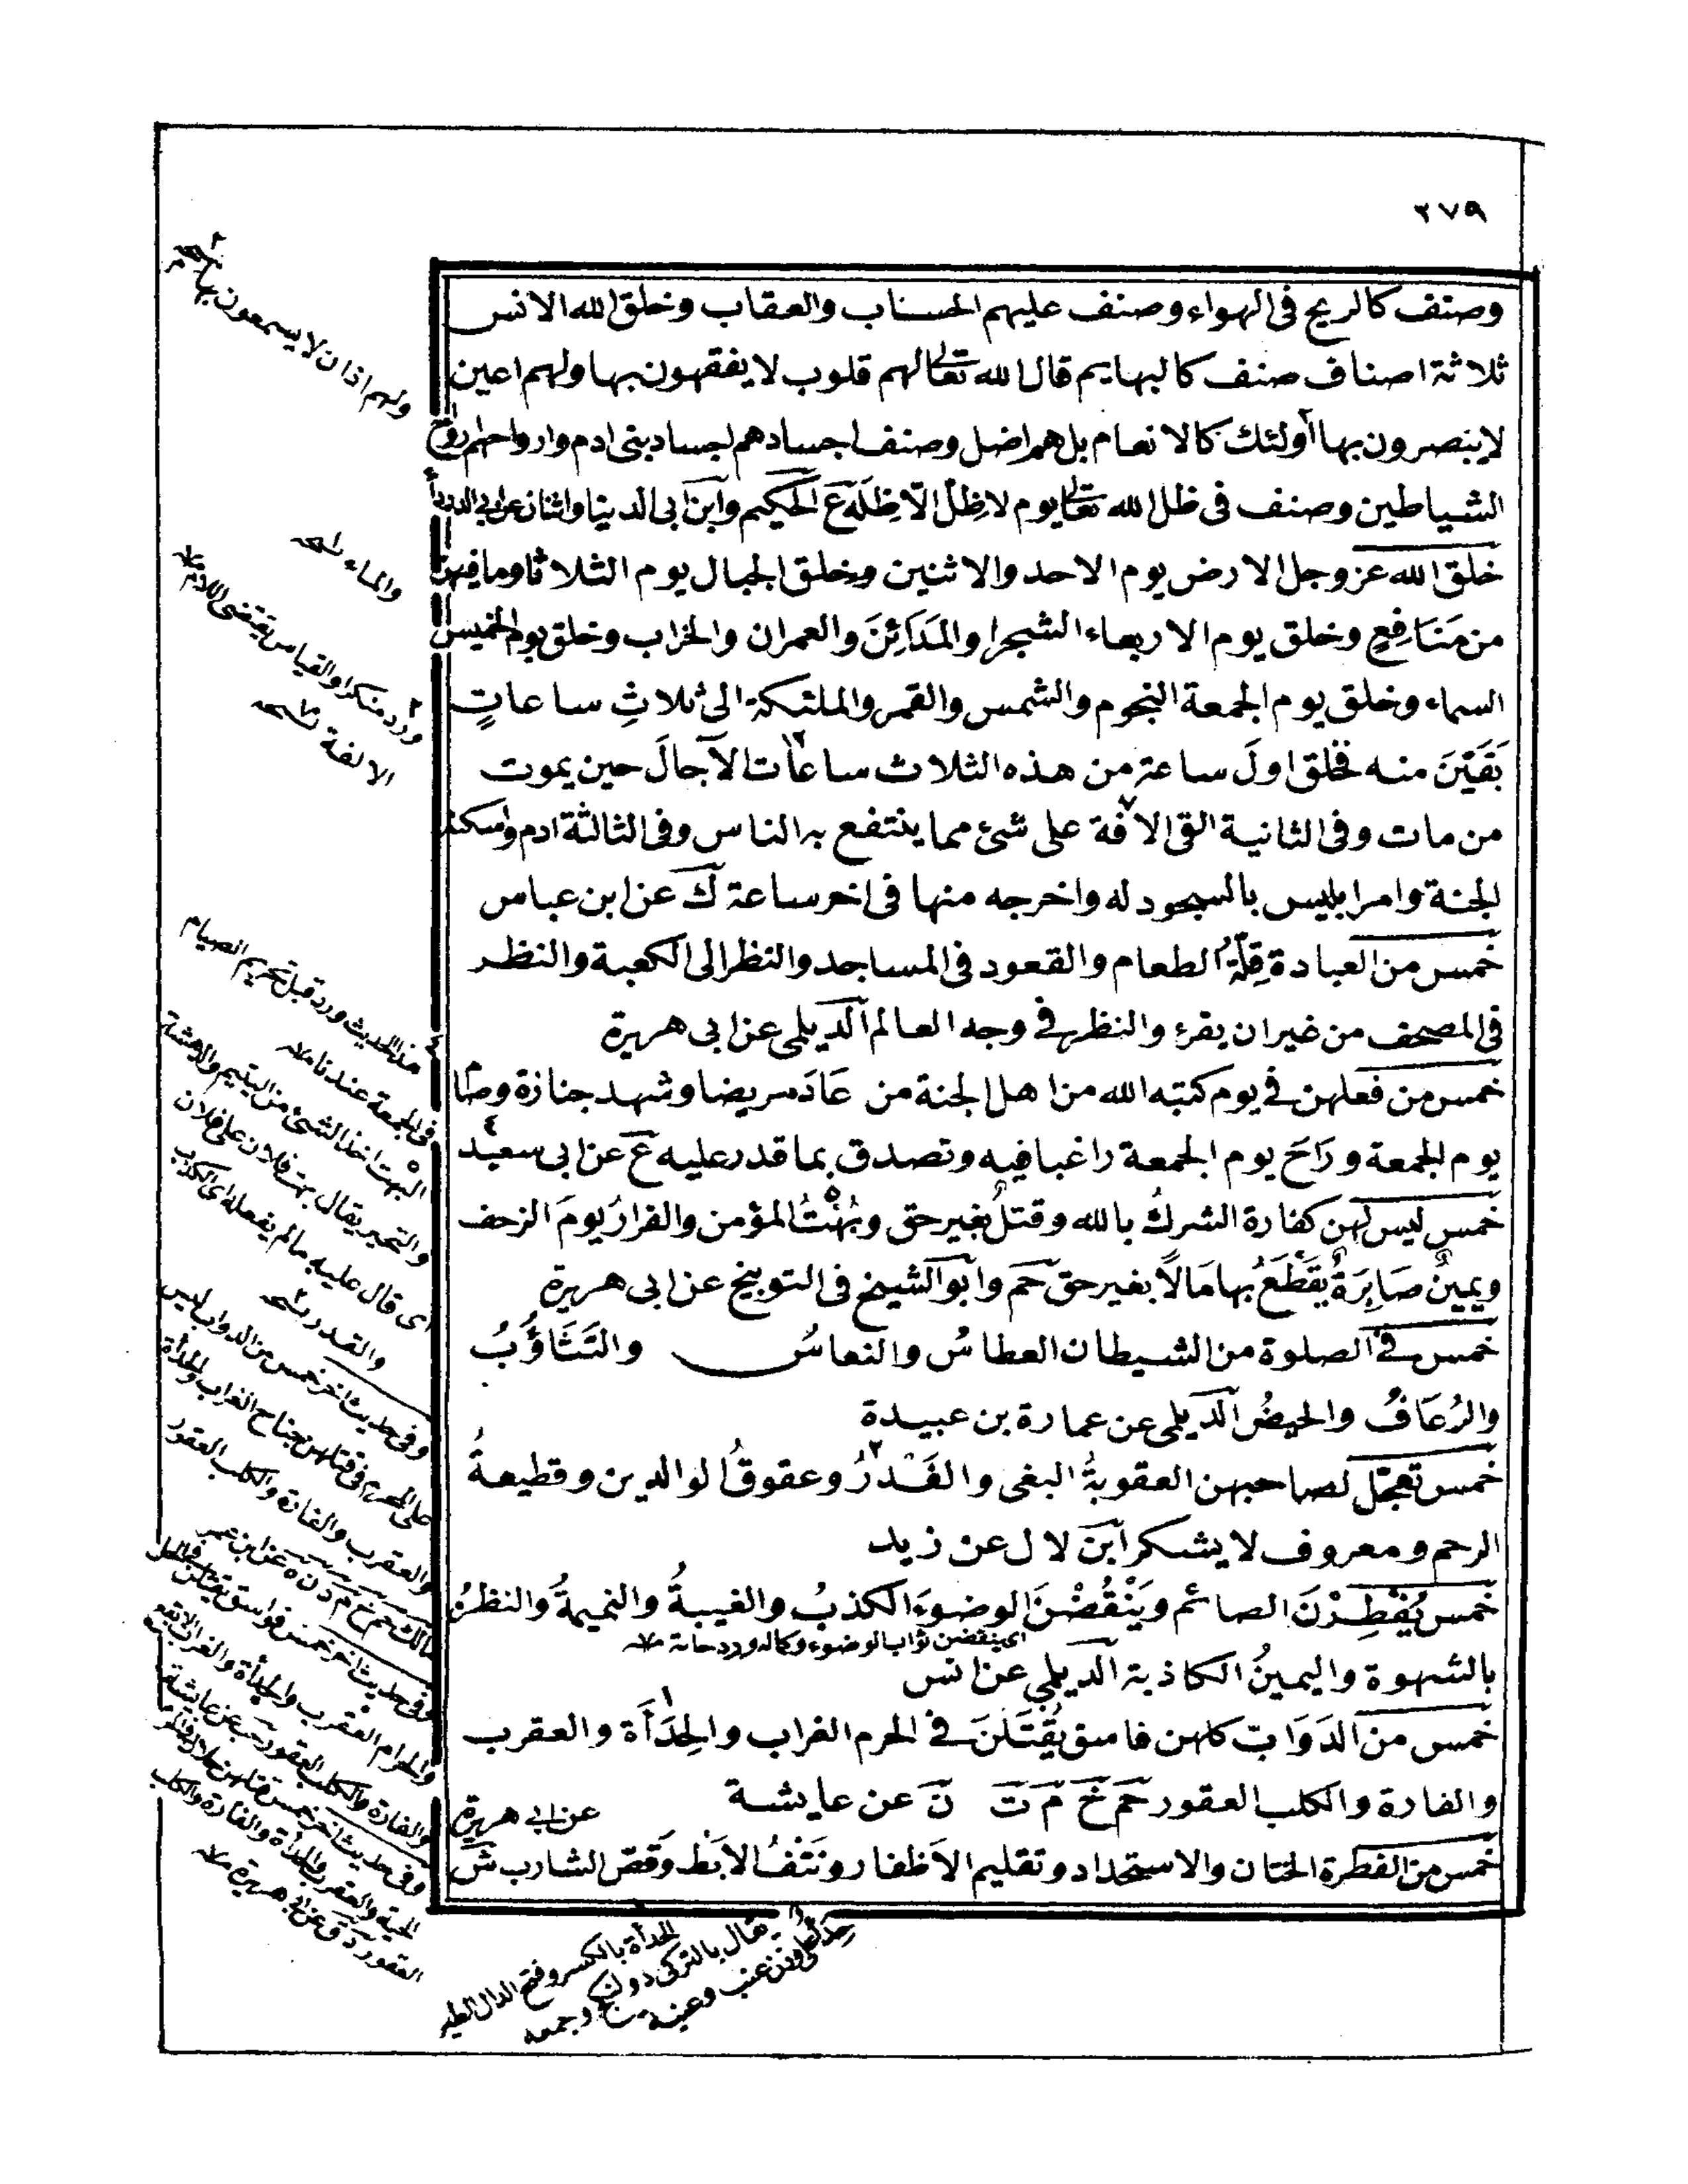 ٢٧٩
وصنف كالريح فى الهواء وصنف عليهم الحساب والعقاب وخلق الله الانس
ثلاثة اصناف صنف كالبهايم قال الله تعالى لهم قلوب لا يفقهون بها ولهم اعين
لا يبصرون بها اولئك كالانعام بل هم اضل وصنف اجسادهم اجساد بنى ادم وارواحهم ارواح
الشياطين وصنف فى ظل الله تعالى يوم لا ظِلّ الّا ظِلّه عَ الحكيم وابن ابى الدنيا واثنان عن ابى الدرداء
خلق الله عز وجل الارض يوم الاحد والاثنين وخلق الجبال يوم الثلاثا وما فيهن
من مَنَافِعٍ وخلق يوم الاربعاء الشجر والمَدَائِنَ والعمران والخراب وخلق يوم الخميس
السماء وخلق يوم الجمعة النجوم والشمس والقمر والملئكة الى ثلاثِ ساعاتٍ
بَقَيْنَ منه فخلق اولَ ساعة من هذه الثلاث ساعات الآجالَ حين يموت
من مات وفى الثانية القى الافة على شئ مما ينتفع به الناس وفى الثالثة ادم واسكنه
الجنة وامر ابليس بالسجود له واخرجه منها فى اخر ساعة ك عن ابن عباس
خمس من العبادة قِلّةُ الطعام والقعود فى المساجد والنظر الى الكعبة والنظر
فى المصحف من غير ان يقرء والنظر فى وجه العالم الديلمى عن ابى هريرة
خمس من فعلهن فى يوم كتبه الله من اهل الجنة من عَادَ مريضا وشهد جنازة وصام
يوم الجمعة ورَاحَ يوم الجمعة راغبا فيه وتصدق بما قدر عليه ع عن ابى سعيد
خمس ليس لهن كفارة الشركُ بالله وقتلٌ بغير حق وبُهْتُ المؤمن والفرارُ يومَ الزحف
ويمينٌ صَابِرَةٌ يُقْطَعُ بها مَالاً بغير حق حم وابو الشيخ فى التوبيخ عن ابى هريرة
خمس فى الصلوة من الشيطان العطاسُ والنعاسُ والتَثَاؤُبُ
والرُعَافُ والحيضُ الديلمى عن عمارة بن عبيدة
خمس تعجّل لصاحبهن العقوبةُ البغى والغَدْرُ وعقوقُ الوالدين وقطيعةُ
الرحم ومعروف لا يشكر ابن لال عن زيد
خمس يُفْطِرْنَ الصائم ويَنْقُضْنَ الوضوءَ الكذبُ والغيبةُ والنميمةُ والنظرُ
اى ينقضن ثواب الوضوء وكماله
بالشهوة واليمينُ الكاذبة الديلمى عن انس
خمس من الدَوَابّ كلهن فاسق يُقْتَلنَ فى الحرم الغراب والحِدَأَة والعقرب
والفارة والكلب العقور حم خ م ت ن عن عايشة
عن ابى هريرة
خمس من الفطرة الختان والاستحداد وتقليم الاظفار ونَتْفُ الابْط وقصّ الشارب ش
ولهم اذان لا يسمعون بها نسخه
والماء نسخه
ورد منكرا والقياس يقتضى
الالفة نسخه
هذا الحديث ورد قبل تحريم الصيام
فى الجمعة عندنا
البهت اخذ الشئ من اليتيم والدهشة
والتحير يقال بهت فلان على فلان
اى قال عليه ما لم يفعله اى الكذب
والقدر نسخه
وفى حديث اخر خمس من الدواب ليس
على المحرم فى قتلهن جناح الغراب والحدأة
والعقرب والفارة والكلب العقور
مالك حم خ م د ن ه عن ابن عمر
وفى حديث اخر خمس فواسق يقتلن فى الحل
والحرام العقرب والحدأة والغراب الابقع
والفارة والكلب العقور حب عن عايشة
وفى حديث اخر خمس قتلهن حلال فى الحرم
الحية والعقرب والحدأة والفارة والكلب
العقور د ق عن ابى هريرة
الحدأة بالكسر وفتح الدال الطير
يقال بالتركى دولنكج وجمعه